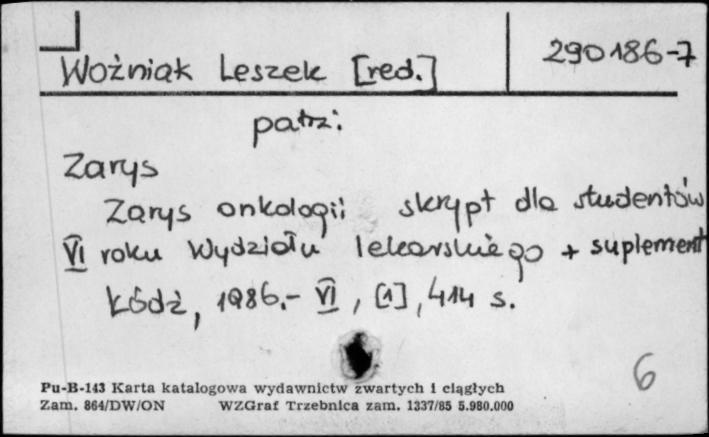 Woźniak Leszek [red.]
290186-7
patrz:
Zarys
Zarys onkologii skrypt dla studentów
VI roku Wydziału lekarskiego + suplement
Łódź, 1986.- VI, [1], 414 s.
6
Pu-B-143 Karta katalogowa wydawnictw zwartych i ciągłych
Zam. 864/DW/ON WZGraf Trzebnica zam. 1337/85 5.980.000